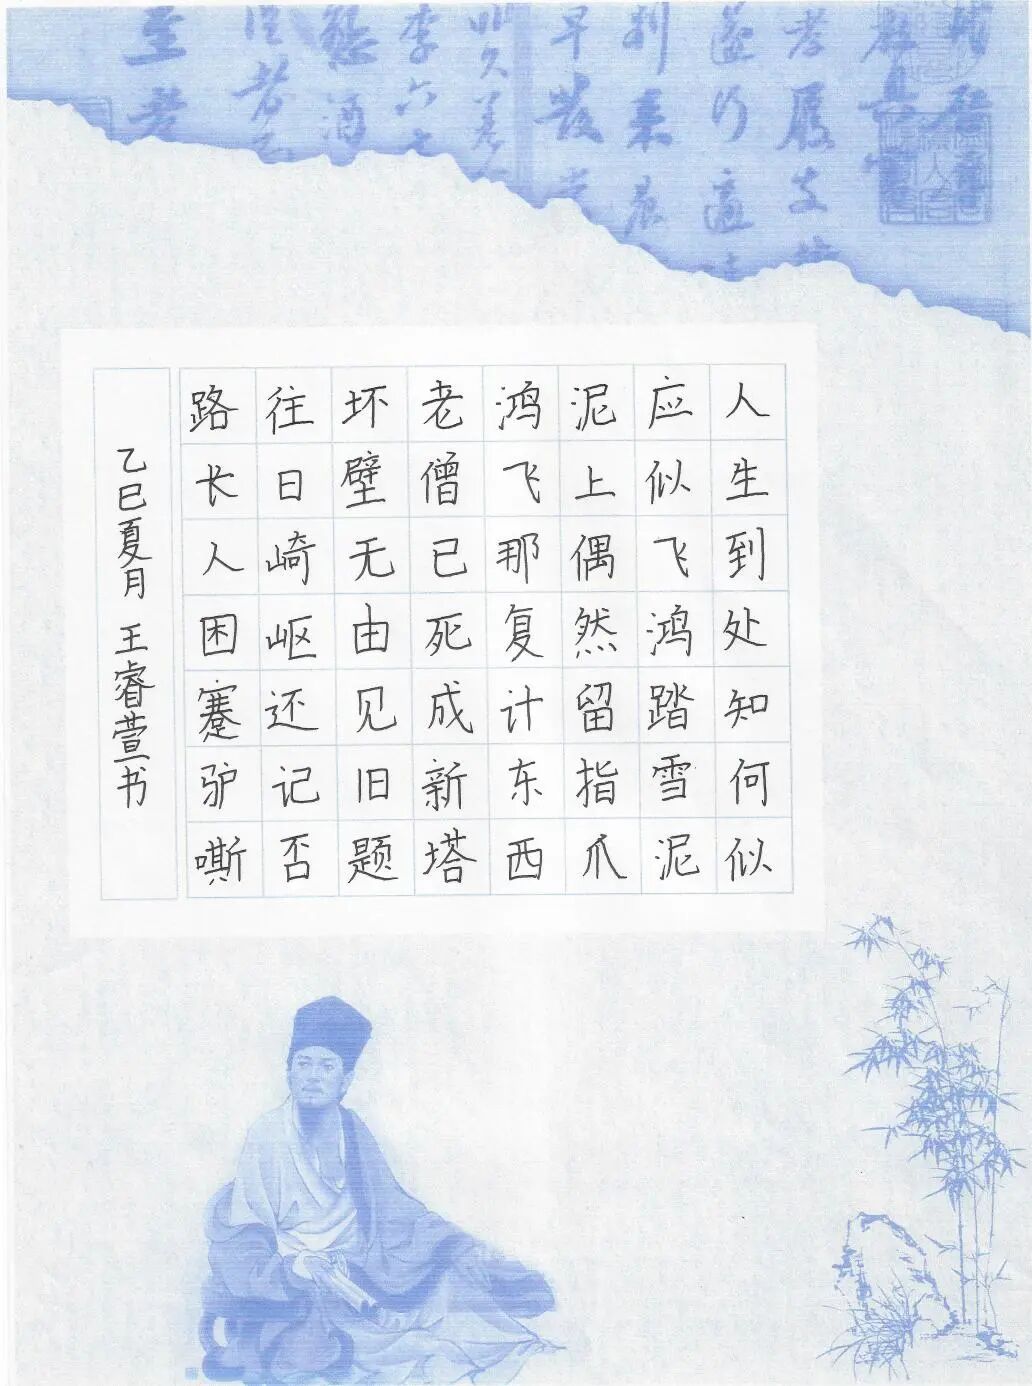 人生到处知何似
应似飞鸿踏雪泥
泥上偶然留指爪
鸿飞那复计东西
老僧已死成新塔
坏壁无由见旧题
往日崎岖还记否
路长人困蹇驴嘶
乙巳夏月 王睿萱书